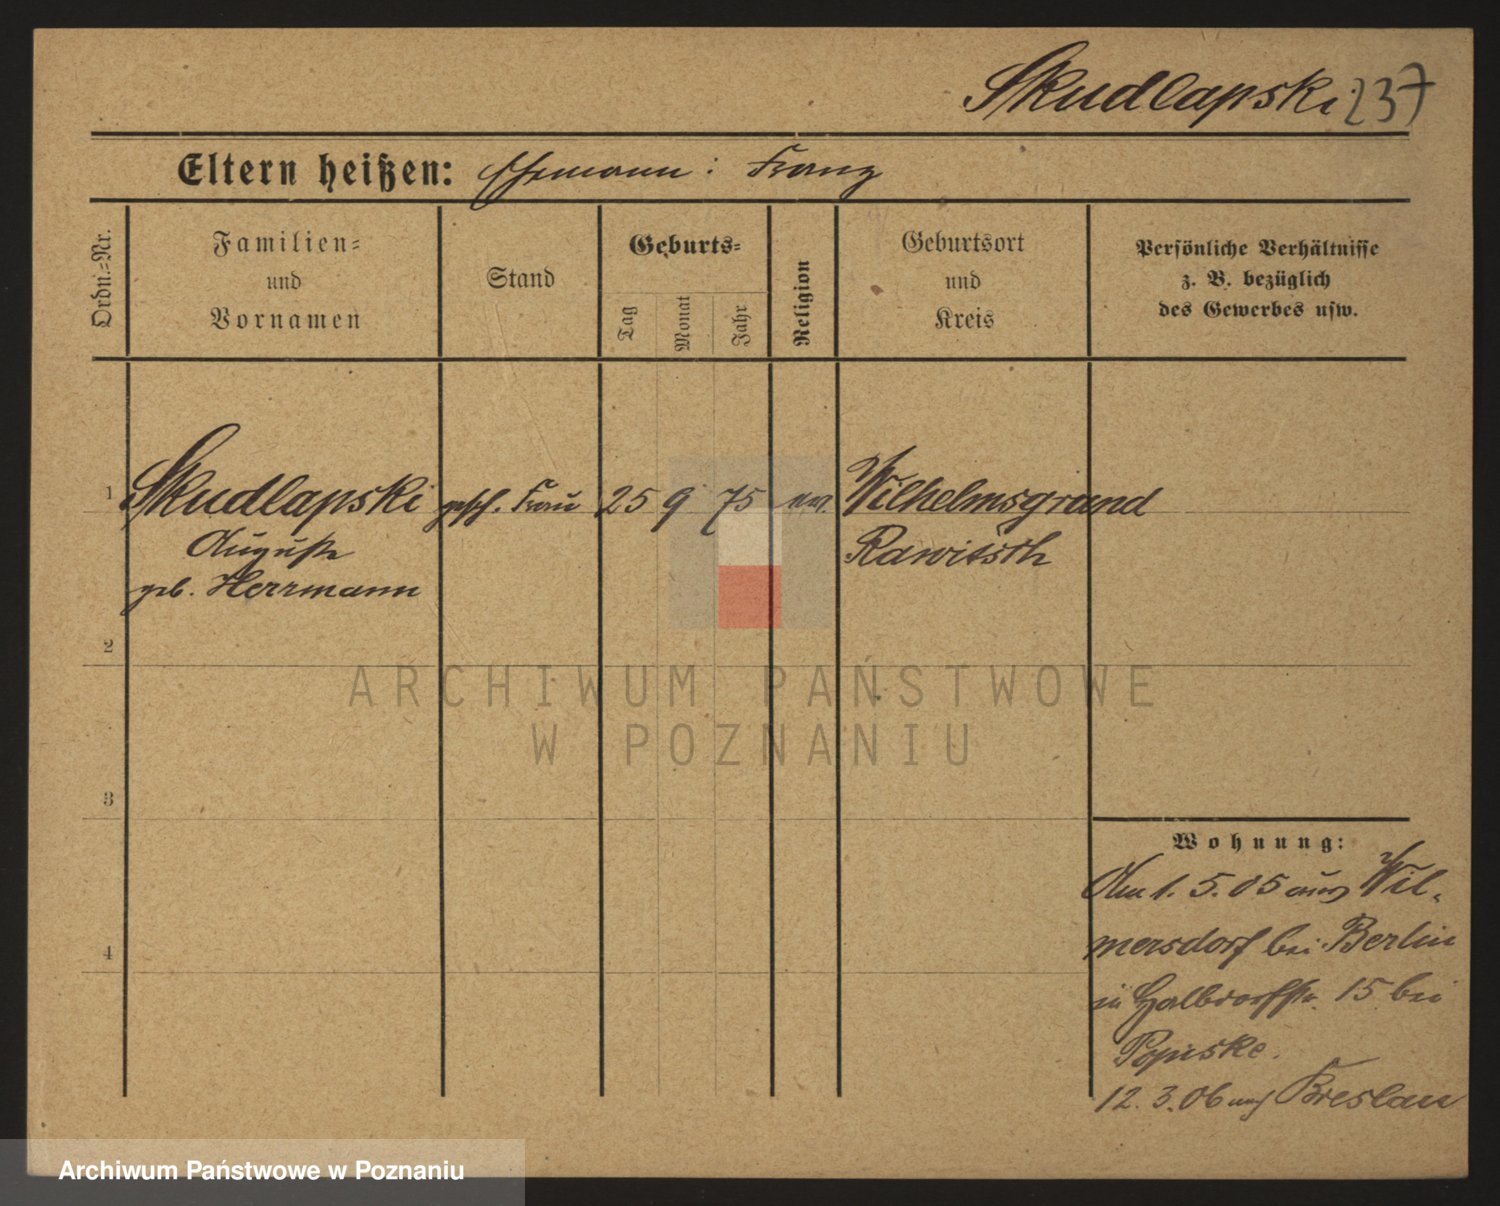 Skudlapski 237
Eltern heißen: Ehemann: Franz
Ordn.=Nr.
Familien=
und
Vornamen
Stand
Geburts=
Tag
Monat
Jahr
Religion
Geburtsort
und
Kreis
Persönliche Verhältnisse
z. B. bezüglich
des Gewerbes usw.
1 Skudlapski gesch. Frau 25 9 75 ev. Wilhelmsgrund
Auguste Rawitsch
geb. Herrmann
2
3
4
Wohnung:
Am 1. 5. 05 aus Wil-
mersdorf bei Berlin
in 15 bei
12. 3. 06 nach Breslau
ARCHIWUM PAŃSTWOWE
W POZNANIU
Archiwum Państwowe w Poznaniu